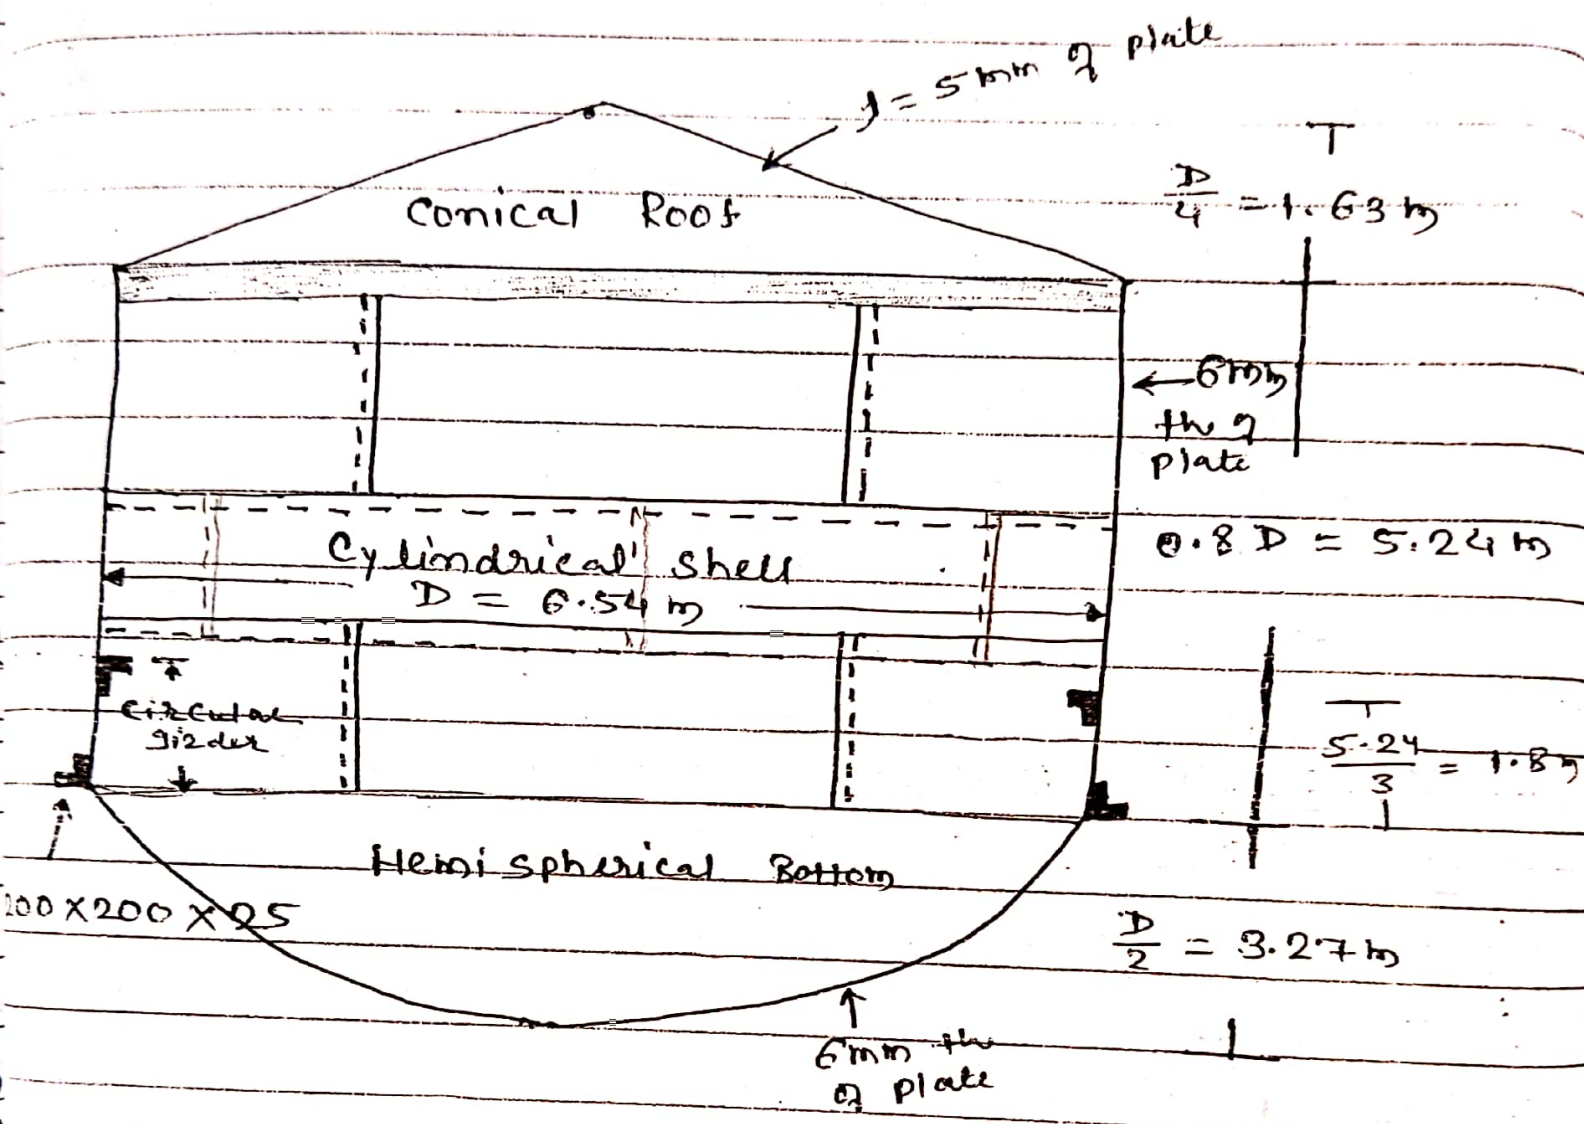 = 5 mm of plate
Conical Roof
D/4 = 1.63 m
6mm
th of
plate
0.8 D = 5.24 m
Cylindrical Shell
D = 6.54 m
Circular
girder
5.24/3 = 1.8
Hemispherical Bottom
200 X 200 X 25
D/2 = 3.27 m
6mm th
of plate